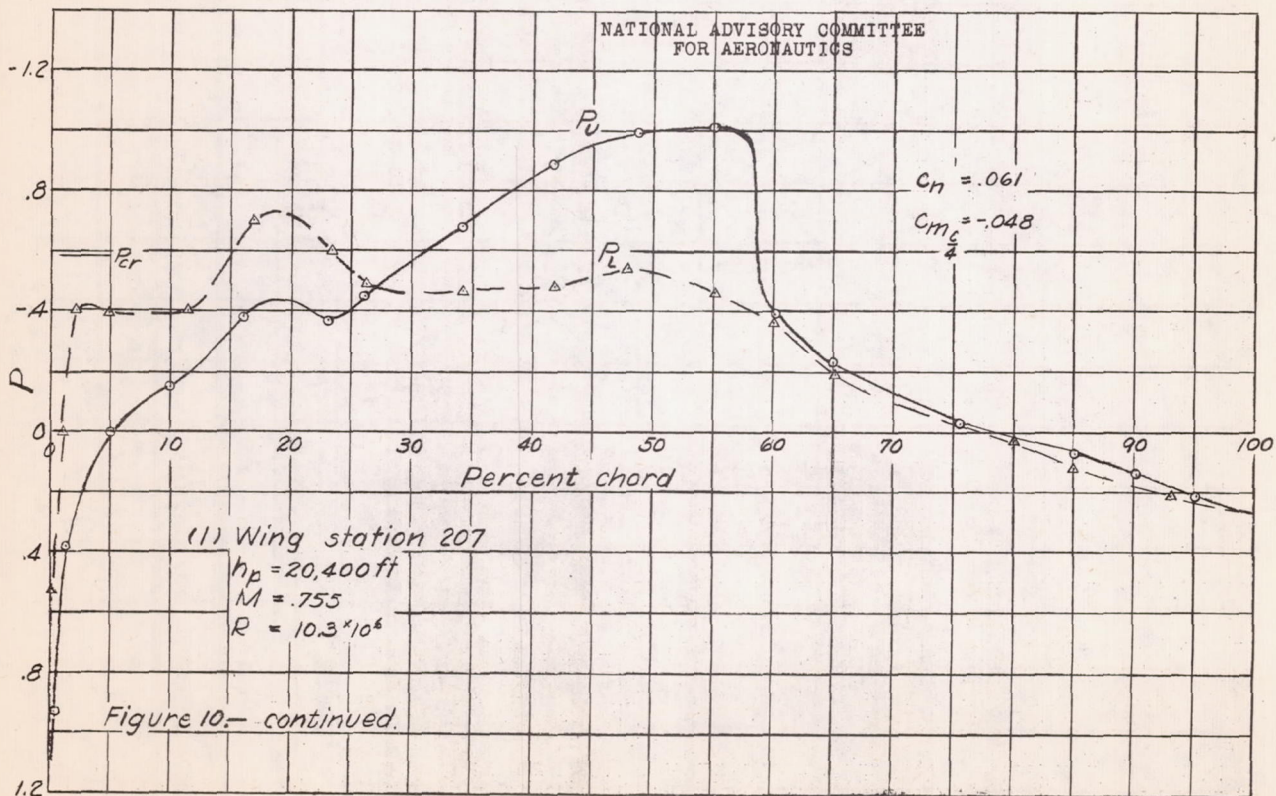 NATIONAL ADVISORY COMMITTEE
FOR AERONAUTICS
-1.2
.8
-.4
0
.4
.8
1.2
P
Pcr
PU
PL
cn = .061
cm c/4 = -.048
0 10 20 30 40 50 60 70 80 90 100
Percent chord
(1) Wing station 207
hp = 20,400 ft
M = .755
R = 10.3 × 10⁶
Figure 10.— continued.